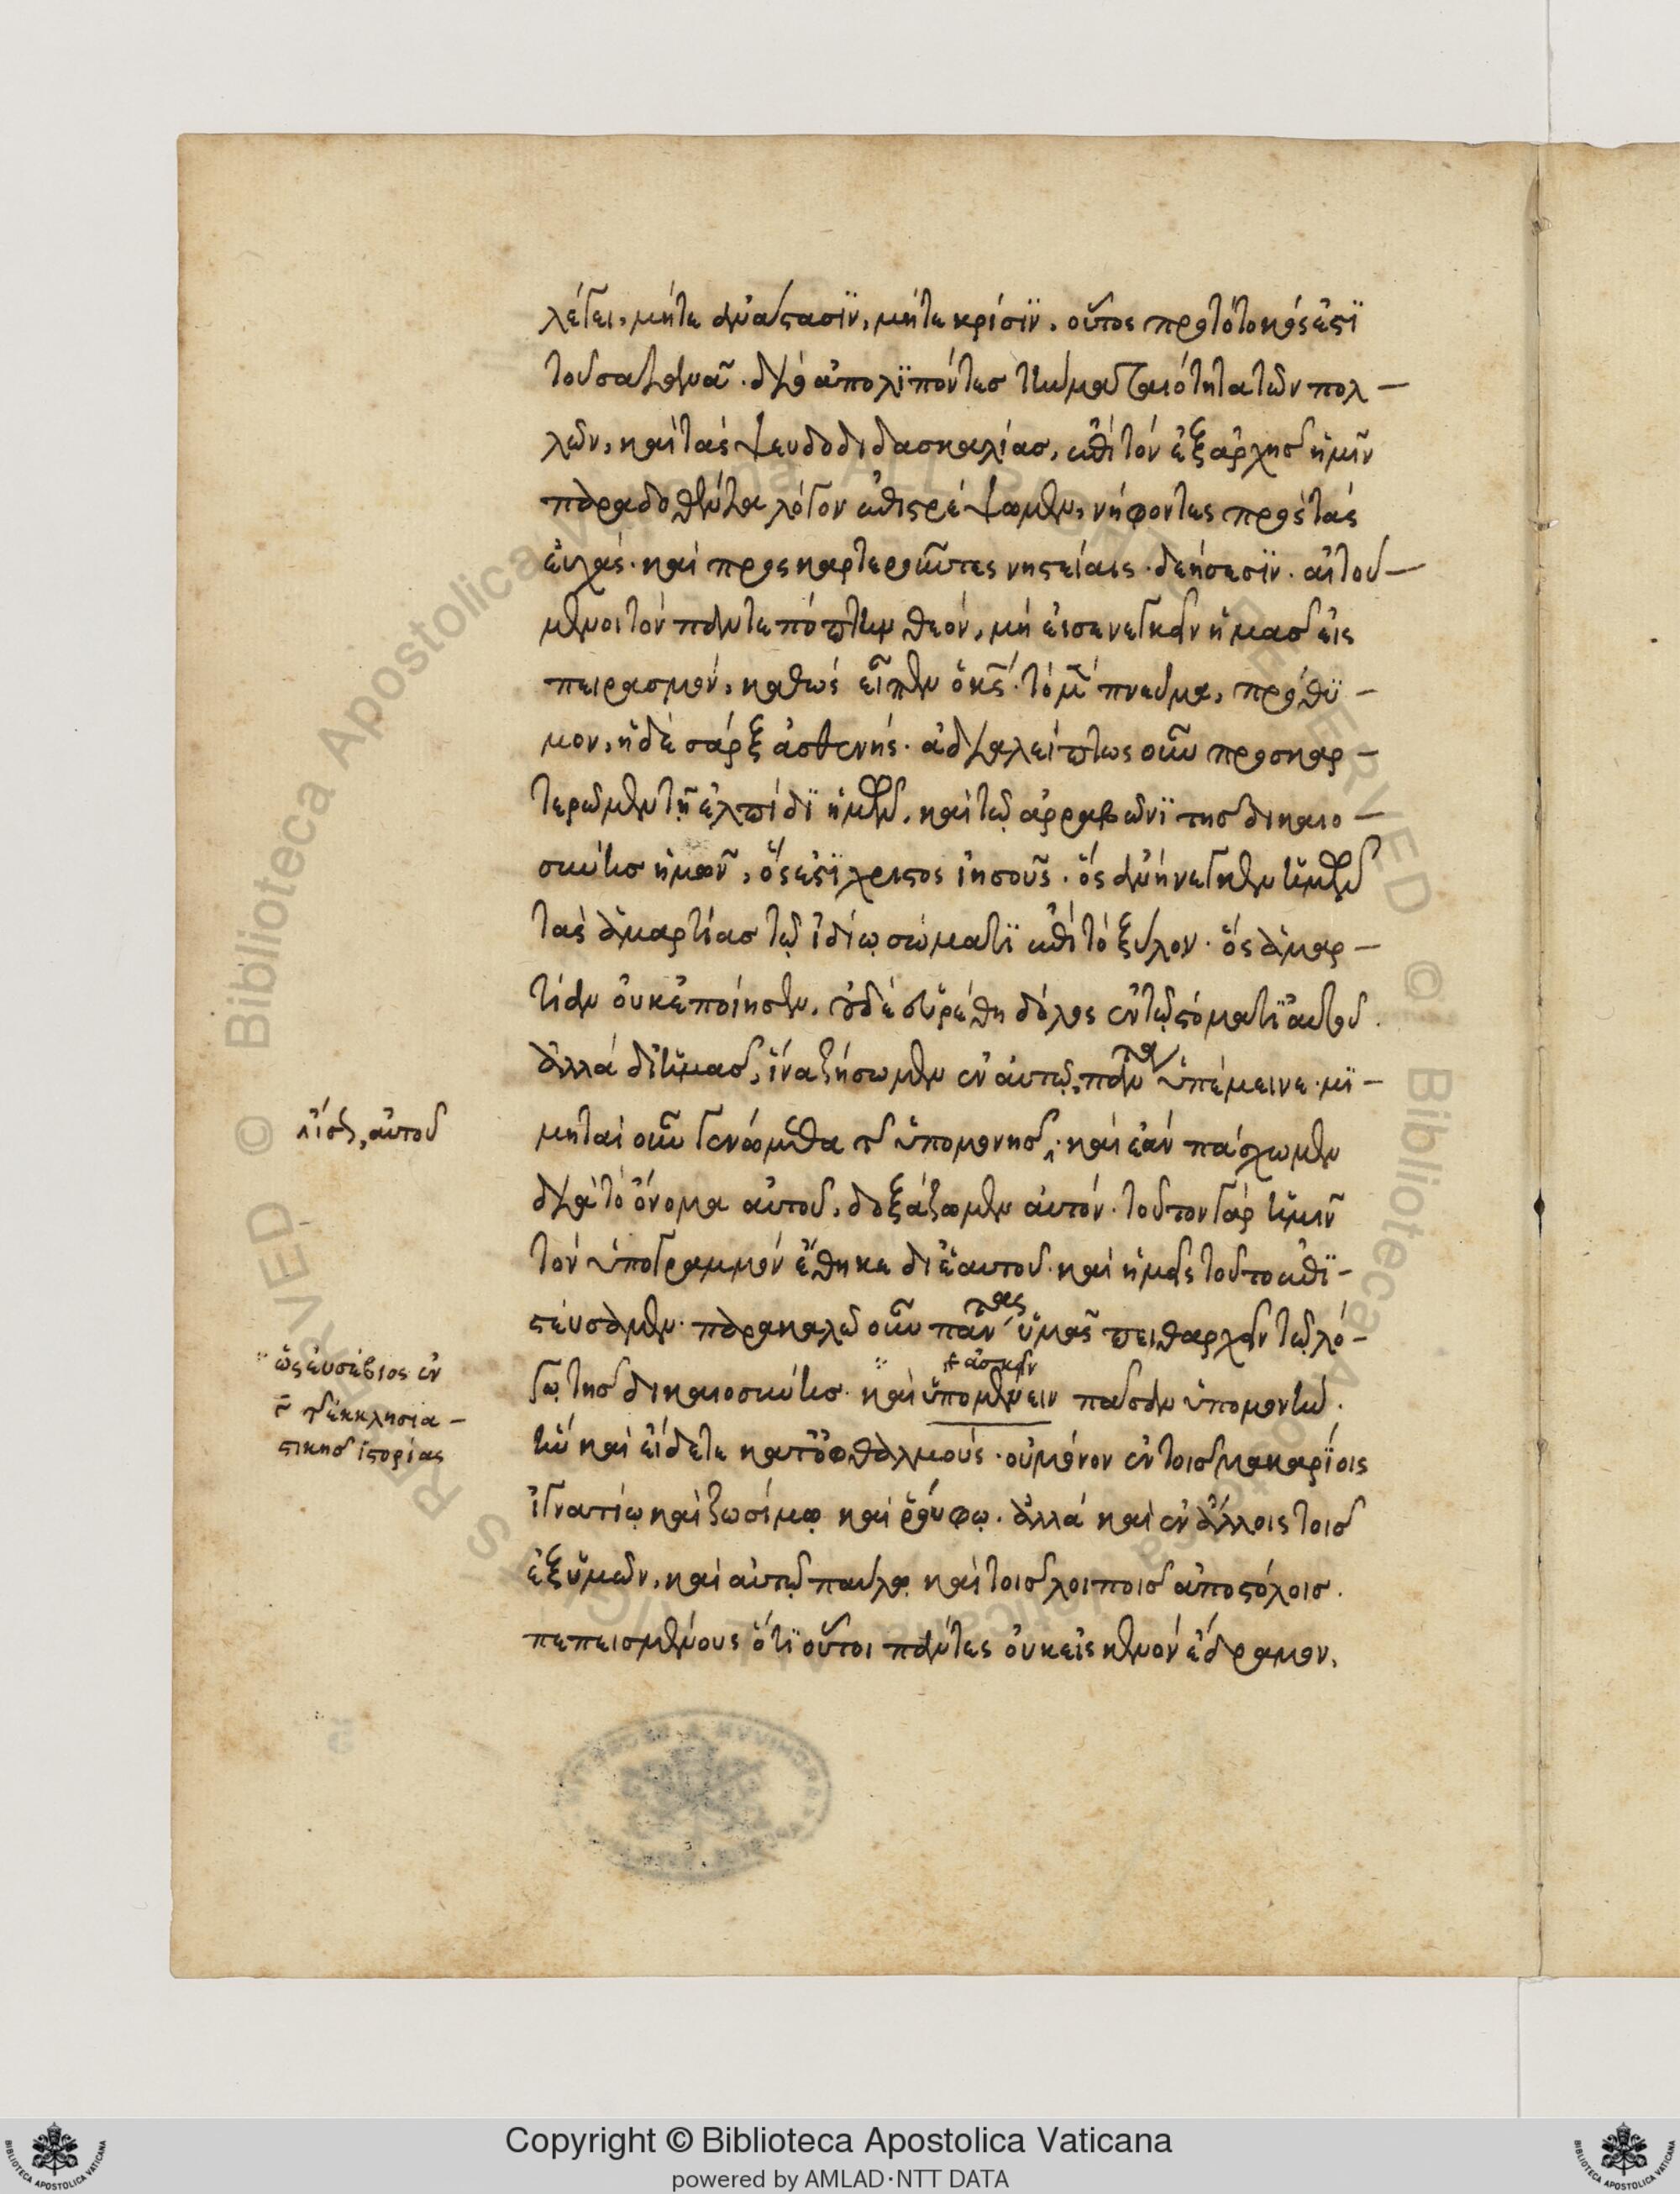 λέγει, μήτε ἀνάστασιν, μήτε κρίσιν, οὗτος πρωτότοκός ἐστι
τοῦ σατανᾶ. διὸ ἀπολιπόντες τὴν ματαιότητα τῶν πολ-
λῶν, καὶ τὰς ψευδοδιδασκαλίας, ἐπὶ τὸν ἐξ ἀρχῆς ἡμῖν
παραδοθέντα λόγον ἐπιστρέψωμεν, νήφοντες πρὸς τὰς
εὐχάς. καὶ προσκαρτεροῦντες νηστείαις. δεήσεσιν. αἰτού-
μενοι τὸν παντεπόπτην θεόν, μὴ εἰσενεγκεῖν ἡμᾶς εἰς
πειρασμόν, καθὼς εἶπεν ὁ κς. τὸ μὲν πνεῦμα, πρόθυ-
μον, ἡ δὲ σάρξ ἀσθενής. ἀδιαλείπτως οὖν προσκαρ-
τερῶμεν τῇ ἐλπίδι ἡμῶν, καὶ τῷ ἀρραβῶνι τῆς δικαιο-
σύνης ἡμῶν, ὅς ἐστι χριστὸς ἰησοῦς. ὃς ἀνήνεγκεν ἡμῶν
τὰς ἁμαρτίας τῷ ἰδίῳ σώματι ἐπὶ τὸ ξύλον. ὃς ἁμαρ-
τίαν οὐκ ἐποίησεν, οὐδὲ εὑρέθη δόλος ἐν τῷ στόματι αὐτοῦ.
ἀλλὰ δι' ἡμᾶς, ἵνα ζήσωμεν ἐν αὐτῷ, πάντα ὑπέμεινε. μι-
μηταὶ οὖν γενώμεθα τῆς ὑπομονῆς. καὶ ἐὰν πάσχωμεν
διὰ τὸ ὄνομα αὐτοῦ, δοξάζωμεν αὐτόν. τοῦτον γὰρ ἡμῖν
τὸν ὑπογραμμὸν ἔθηκε δι' ἑαυτοῦ. καὶ ἡμεῖς τοῦτο ἐπι-
στεύσαμεν. παρακαλῶ οὖν πάντας ὑμᾶς πειθαρχεῖν τῷ λό-
γῳ τῆς δικαιοσύνης. καὶ ὑπομένειν πᾶσαν ὑπομονήν.
ἀσκεῖν
ἣν καὶ εἴδετε κατ' ὀφθαλμούς. οὐ μόνον ἐν τοῖς μακαρίοις
ἰγνατίῳ καὶ ζωσίμῳ καὶ ῥούφῳ. ἀλλὰ καὶ ἐν ἄλλοις τοῖς
ἐξ ὑμῶν, καὶ αὐτῷ παύλῳ καὶ τοῖς λοιποῖς ἀποστόλοις.
πεπεισμένους ὅτι οὗτοι πάντες οὐκ εἰς κενὸν ἔδραμον,
αὐτοῦ
ὡς εὐσέβιος ἐν
τῆς ἐκκλησια-
στικῆς ἱστορίας
Copyright © Biblioteca Apostolica Vaticana
powered by AMLAD·NTT DATA